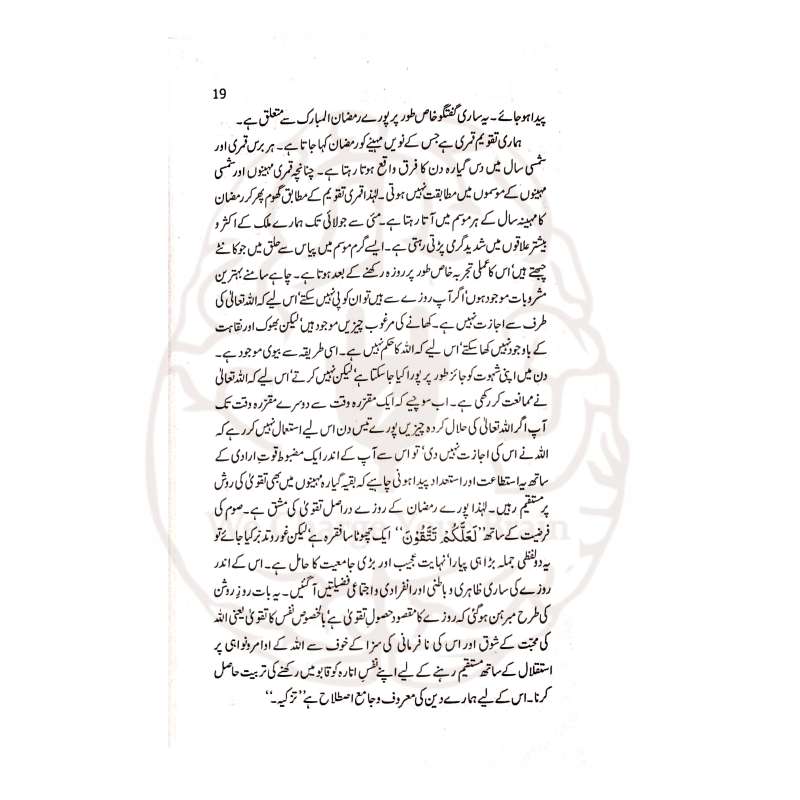 19
پیدا ہو جائے۔ یہ ساری گفتگو خاص طور پر پورے رمضان المبارک سے متعلق ہے۔
ہماری تقویم قمری ہے جس کے نویں مہینے کو رمضان کہا جاتا ہے۔ ہر برس قمری اور
شمسی سال میں دس گیارہ دن کا فرق واقع ہوتا رہتا ہے۔ چنانچہ قمری مہینوں اور شمسی
مہینوں کے موسموں میں مطابقت نہیں ہوتی۔ لہٰذا قمری تقویم کے مطابق گھوم پھر کر رمضان
کا مہینہ سال کے ہر موسم میں آتا رہتا ہے۔ مئی سے جولائی تک ہمارے ملک کے اکثر و
بیشتر علاقوں میں شدید گرمی پڑتی رہتی ہے۔ ایسے گرم موسم میں پیاس سے حلق میں جو کانٹے
چبھتے ہیں‘ اس کا عملی تجربہ خاص طور پر روزہ رکھنے کے بعد ہوتا ہے۔ چاہے سامنے بہترین
مشروبات موجود ہوں‘ اگر آپ روزے سے ہیں تو ان کو پی نہیں سکتے‘ اس لیے کہ اللہ تعالیٰ کی
طرف سے اجازت نہیں ہے۔ کھانے کی مرغوب چیزیں موجود ہیں‘ لیکن بھوک اور نقاہت
کے باوجود نہیں کھا سکتے‘ اس لیے کہ اللہ کا حکم نہیں ہے۔ اسی طریقہ سے بیوی موجود ہے۔
دن میں اپنی شہوت کو جائز طور پر پورا کیا جا سکتا ہے‘ لیکن نہیں کرتے‘ اس لیے کہ اللہ تعالیٰ
نے ممانعت کر رکھی ہے۔ اب سوچیے کہ ایک مقررہ وقت سے دوسرے مقررہ وقت تک
آپ اگر اللہ تعالیٰ کی حلال کردہ چیزیں پورے تیس دن اس لیے استعمال نہیں کر رہے کہ
اللہ نے اس کی اجازت نہیں دی‘ تو اس سے آپ کے اندر ایک مضبوط قوتِ ارادی کے
ساتھ یہ استطاعت اور استعداد پیدا ہونی چاہیے کہ بقیہ گیارہ مہینوں میں بھی تقویٰ کی روش
پر مستقیم رہیں۔ لہٰذا پورے رمضان کے روزے دراصل تقویٰ کی مشق ہے۔ صوم کی
فرضیت کے ساتھ ’’لَعَلَّکُمْ تَتَّقُوْنَ‘‘ ایک چھوٹا سا فقرہ ہے‘ لیکن غور و تدبر کیا جائے تو
یہ دو لفظی جملہ بڑا ہی پیارا‘ نہایت عجیب اور بڑی جامعیت کا حامل ہے۔ اس کے اندر
روزے کی ساری ظاہری و باطنی اور انفرادی و اجتماعی فضیلتیں آ گئیں۔ یہ بات روزِ روشن
کی طرح مبرہن ہو گئی کہ روزے کا مقصود حصولِ تقویٰ ہے‘ بالخصوص نفس کا تقویٰ یعنی اللہ
کی محبّت کے شوق اور اس کی نافرمانی کی سزا کے خوف سے اللہ کے اوامر و نواہی پر
استقلال کے ساتھ مستقیم رہنے کے لیے اپنے نفسِ امّارہ کو قابو میں رکھنے کی تربیت حاصل
کرنا۔ اس کے لیے ہمارے دین کی معروف و جامع اصطلاح ہے ’’تزکیہ۔‘‘